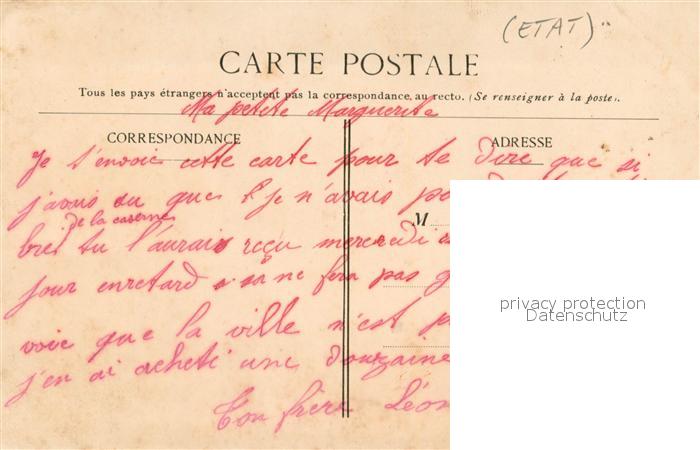 (ETAT)
CARTE POSTALE
Tous les pays étrangers n'acceptent pas la correspondance, au recto. (Se renseigner à la poste).
Ma petite Marguerite
CORRESPONDANCE
ADRESSE
Je t'envoie cette carte pour te dire que si
j'avais su que je n'avais
de la caserne
M
tu l'aurais reçu mercredi
jour enretard sa ne fera pas
voie que la ville n'est
j'en ai acheti une douzaine
Ton frère Léon
privacy protection
Datenschutz